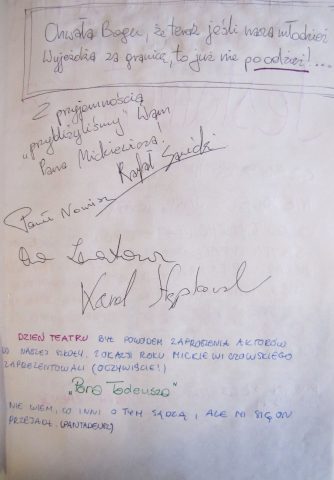 Chwała Bogu, że teraz jeśli nasza młodzież
wyjeżdża za granicę, to już nie po odzież!...
Z przyjemnością
„przybliżyliśmy” Wam
Pana Mickiewicza!
Rafał Sawicki
Paweł
Karol
DZIEŃ TEATRU BYŁ POWODEM ZAPROSZENIA AKTORÓW
DO NASZEJ SZKOŁY. Z OKAZJI ROKU MICKIEWICZOWSKIEGO
ZAPREZENTOWALI (OCZYWIŚCIE!)
„Pana Tadeusza”
NIE WIEM, CO INNI O TYM SĄDZĄ, ALE MI SIĘ ON
PRZEJADŁ. (PANTADEUSZ)